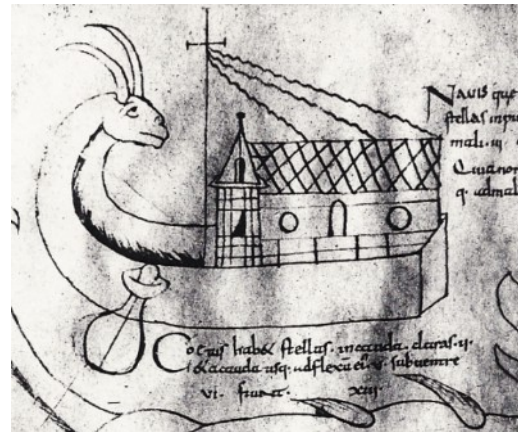 Nauis que
stellas inpu
mali · iii
Quia non
q · admal
hab& stellas · incauda · claras · ii ·
acauda usq · ad flexū · subuentre
vi · fiunt · xiii ·